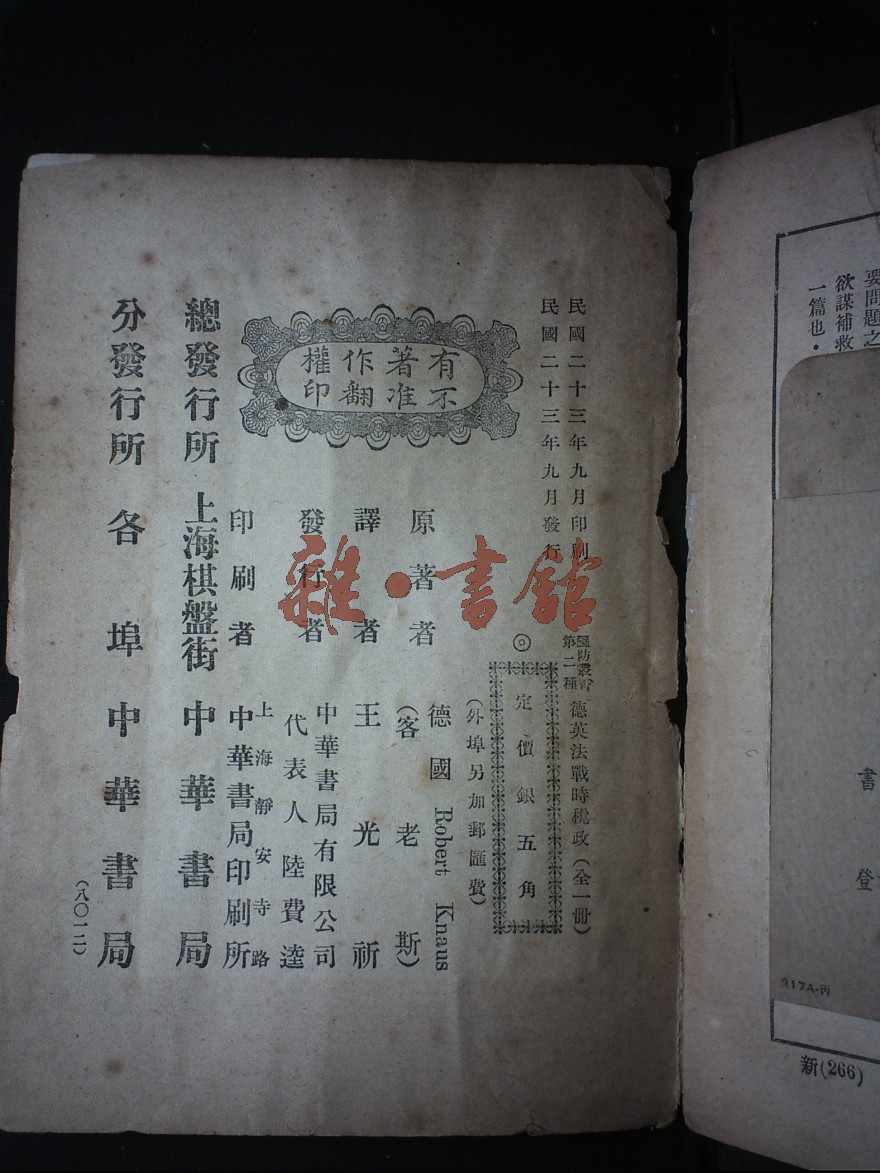 要問題之
欲謀補救
一篇也．
書
登
新(266)
民國二十三年九月印刷
民國二十三年九月發行
國防叢書
第二種
德英法戰時稅政（全一冊）
◎定價銀五角
（外埠另加郵匯費）
有不
著准
作翻
權印
原著者
德國 Robert Knaus
（客老斯）
譯者 王光祈
發行者
中華書局有限公司
代表人 陸費逵
印刷者
上海靜安寺路
中華書局印刷所
總發行所 上海棋盤街 中華書局
分發行所 各埠中華書局
（八〇一二）
雜·書館